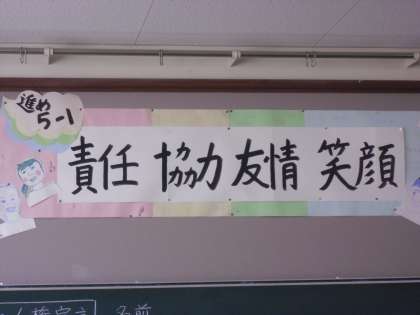 進め
5-1
責任 協力 友情 笑顔
名前